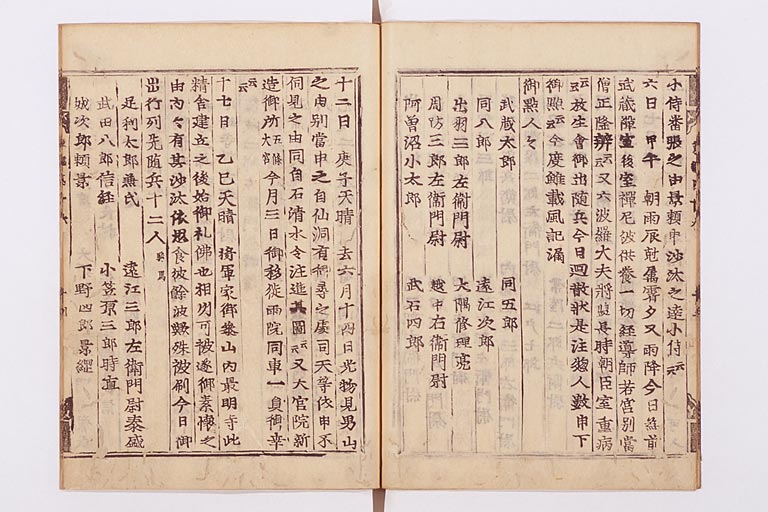 小侍番張之由景頼申沙汰之達小侍云云
六日 甲午 朝雨辰尅属霽夕又雨降今日故前
武蔵禅室後室禅尼被供養一切経導師若宮別当
僧正隆辨云云又六波羅大夫将監長時朝臣室重病
云云放生會御出随兵今日廻散状是注人数申下
御點云云今度雖載風記漏
御點人々
武蔵太郎 同五郎
同八郎三郎 遠江次郎
出羽三郎左衛門尉 大隅修理亮
周防三郎左衛門尉 越中右衛門尉
阿曽沼小太郎 武石四郎
十二日 庚子天晴 去六月十四日光物見男山
之由別當申之自仙洞有御尋之處司天等依申不
伺見之由同自石清水令注進其圖云云又大宮院新
造御所 五條大宮 今月三日御移徙両院同車一員御幸
云云
十七日 乙巳天晴 将軍家御参山内最明寺此
精舎建立之後始御礼佛也相州可被遂御素懐之
由内々有其沙汰依思食彼餘波殊被刷今日御
出行列先随兵十二人 騎馬
足利太郎兼氏 遠江三郎左衛門尉泰盛
武田八郎信経 小笠原三郎時直
城次郎頼景 下野四郎景經